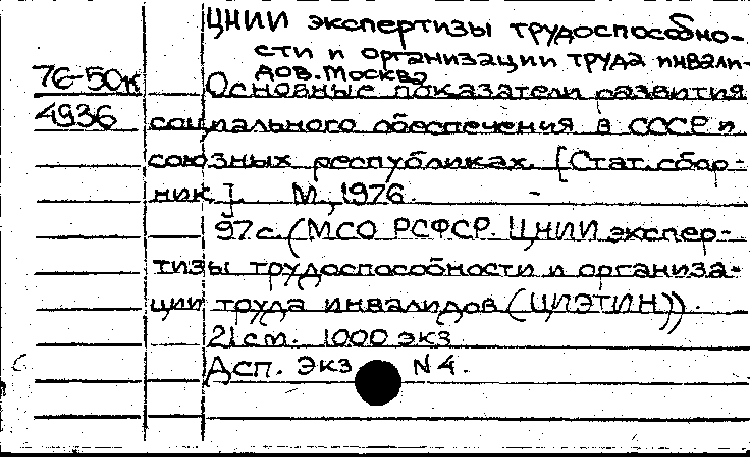 ЦНИИ экспертизы трудоспособно-
сти и организации труда инвали-
дов. Москва
76-50к Основные показатели развития
4936 социального обеспечения в СССР и
союзных республиках. [Стат. сбор-
ник]. М., 1976.
97с. (МСО РСФСР. ЦНИИ экспер-
тизы трудоспособности и организа-
ции труда инвалидов (ЦИЭТИН)).
21см. 1000 экз
Дсп. Экз N4.